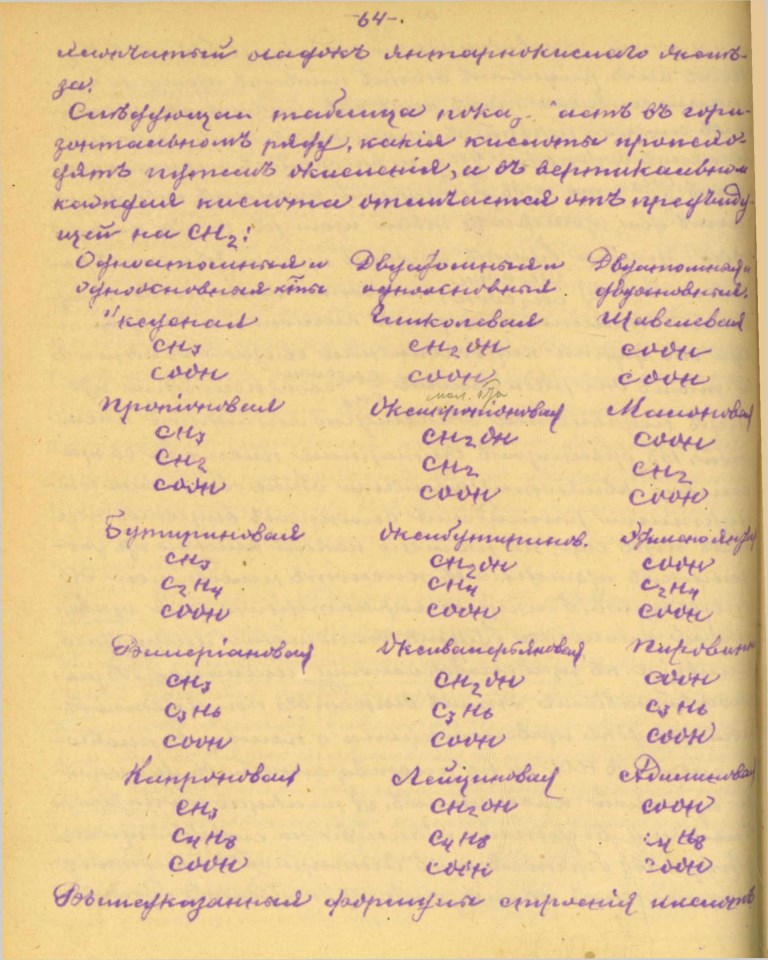 -64-.
осадокъ янтарнокислаго желѣ-
за.
Слѣдующая таблица пока аетъ въ гори-
зонтальномъ ряду, какія кислоты происхо-
дятъ путемъ окисленія, а въ вертикальном
каждая кислота отличается отъ предыду-
щей на CH2:
Одноатомныя и Двуатомныя и Двуатомныя и
одноосновныя к-ты одноосновныя двуосновныя.
Уксусная Гликолевая Щавелевая
CH3 CH2OH COOH
COOH COOH COOH
мол. к-та
Пропіоновая Оксипропіоновая Малоновая
CH3 CH2OH COOH
CH2 CH2 CH2
COOH COOH COOH
Бутириновая Оксибутиринов.
CH3 CH2OH COOH
C2H4 CH4 C2H4
COOH COOH COOH
Валеріановая Оксивалерьяновая Пировин
CH3 CH2OH COOH
C3H6 C3H6 C3H6
COOH COOH COOH
Капроновая Лейциновая Адипиновая
CH3 CH2OH COOH
C4H8 C4H8 C4H8
COOH COOH COOH
Вышеуказанныя формулы строенія кислотъ